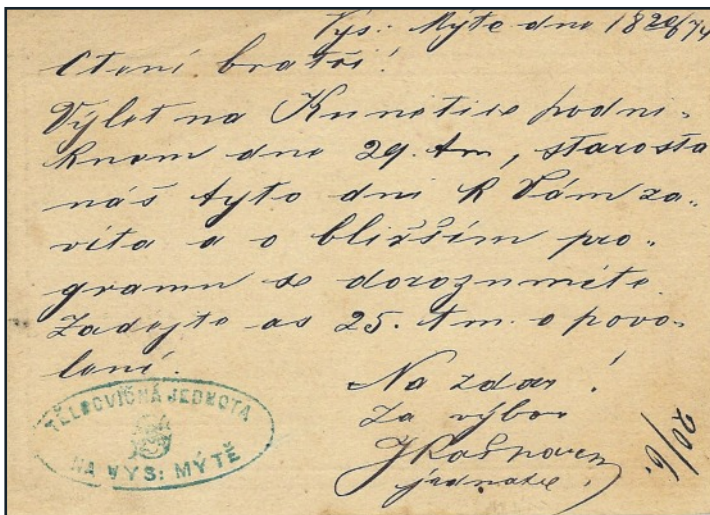 Vys: Mýtě dne 18 20/6 74
Ctění bratři!
Výlet na Kunětice podni-
knem dne 29. t.m., starosta
náš tyto dni k Vám za-
vítá a o bližším pro-
gramu se dorozumíte.
Žádejte as 25. t.m. o povo-
lení.
Na zdar!
Za výbor
jednatel.
20/6.
TĚLOCVIČNÁ JEDNOTA
NA VYS: MÝTĚ